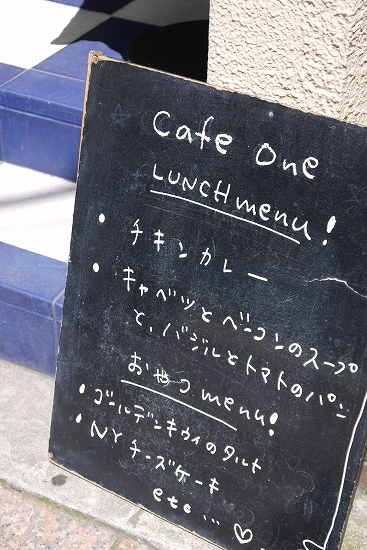 Cafe One
LUNCH menu!
・チキンカレー
・キャベツとベーコンのスープ
と、バジルとトマトのパン
おやつ menu!
・ゴールデンキウィのタルト
・NYチーズケーキ
etc... ♡